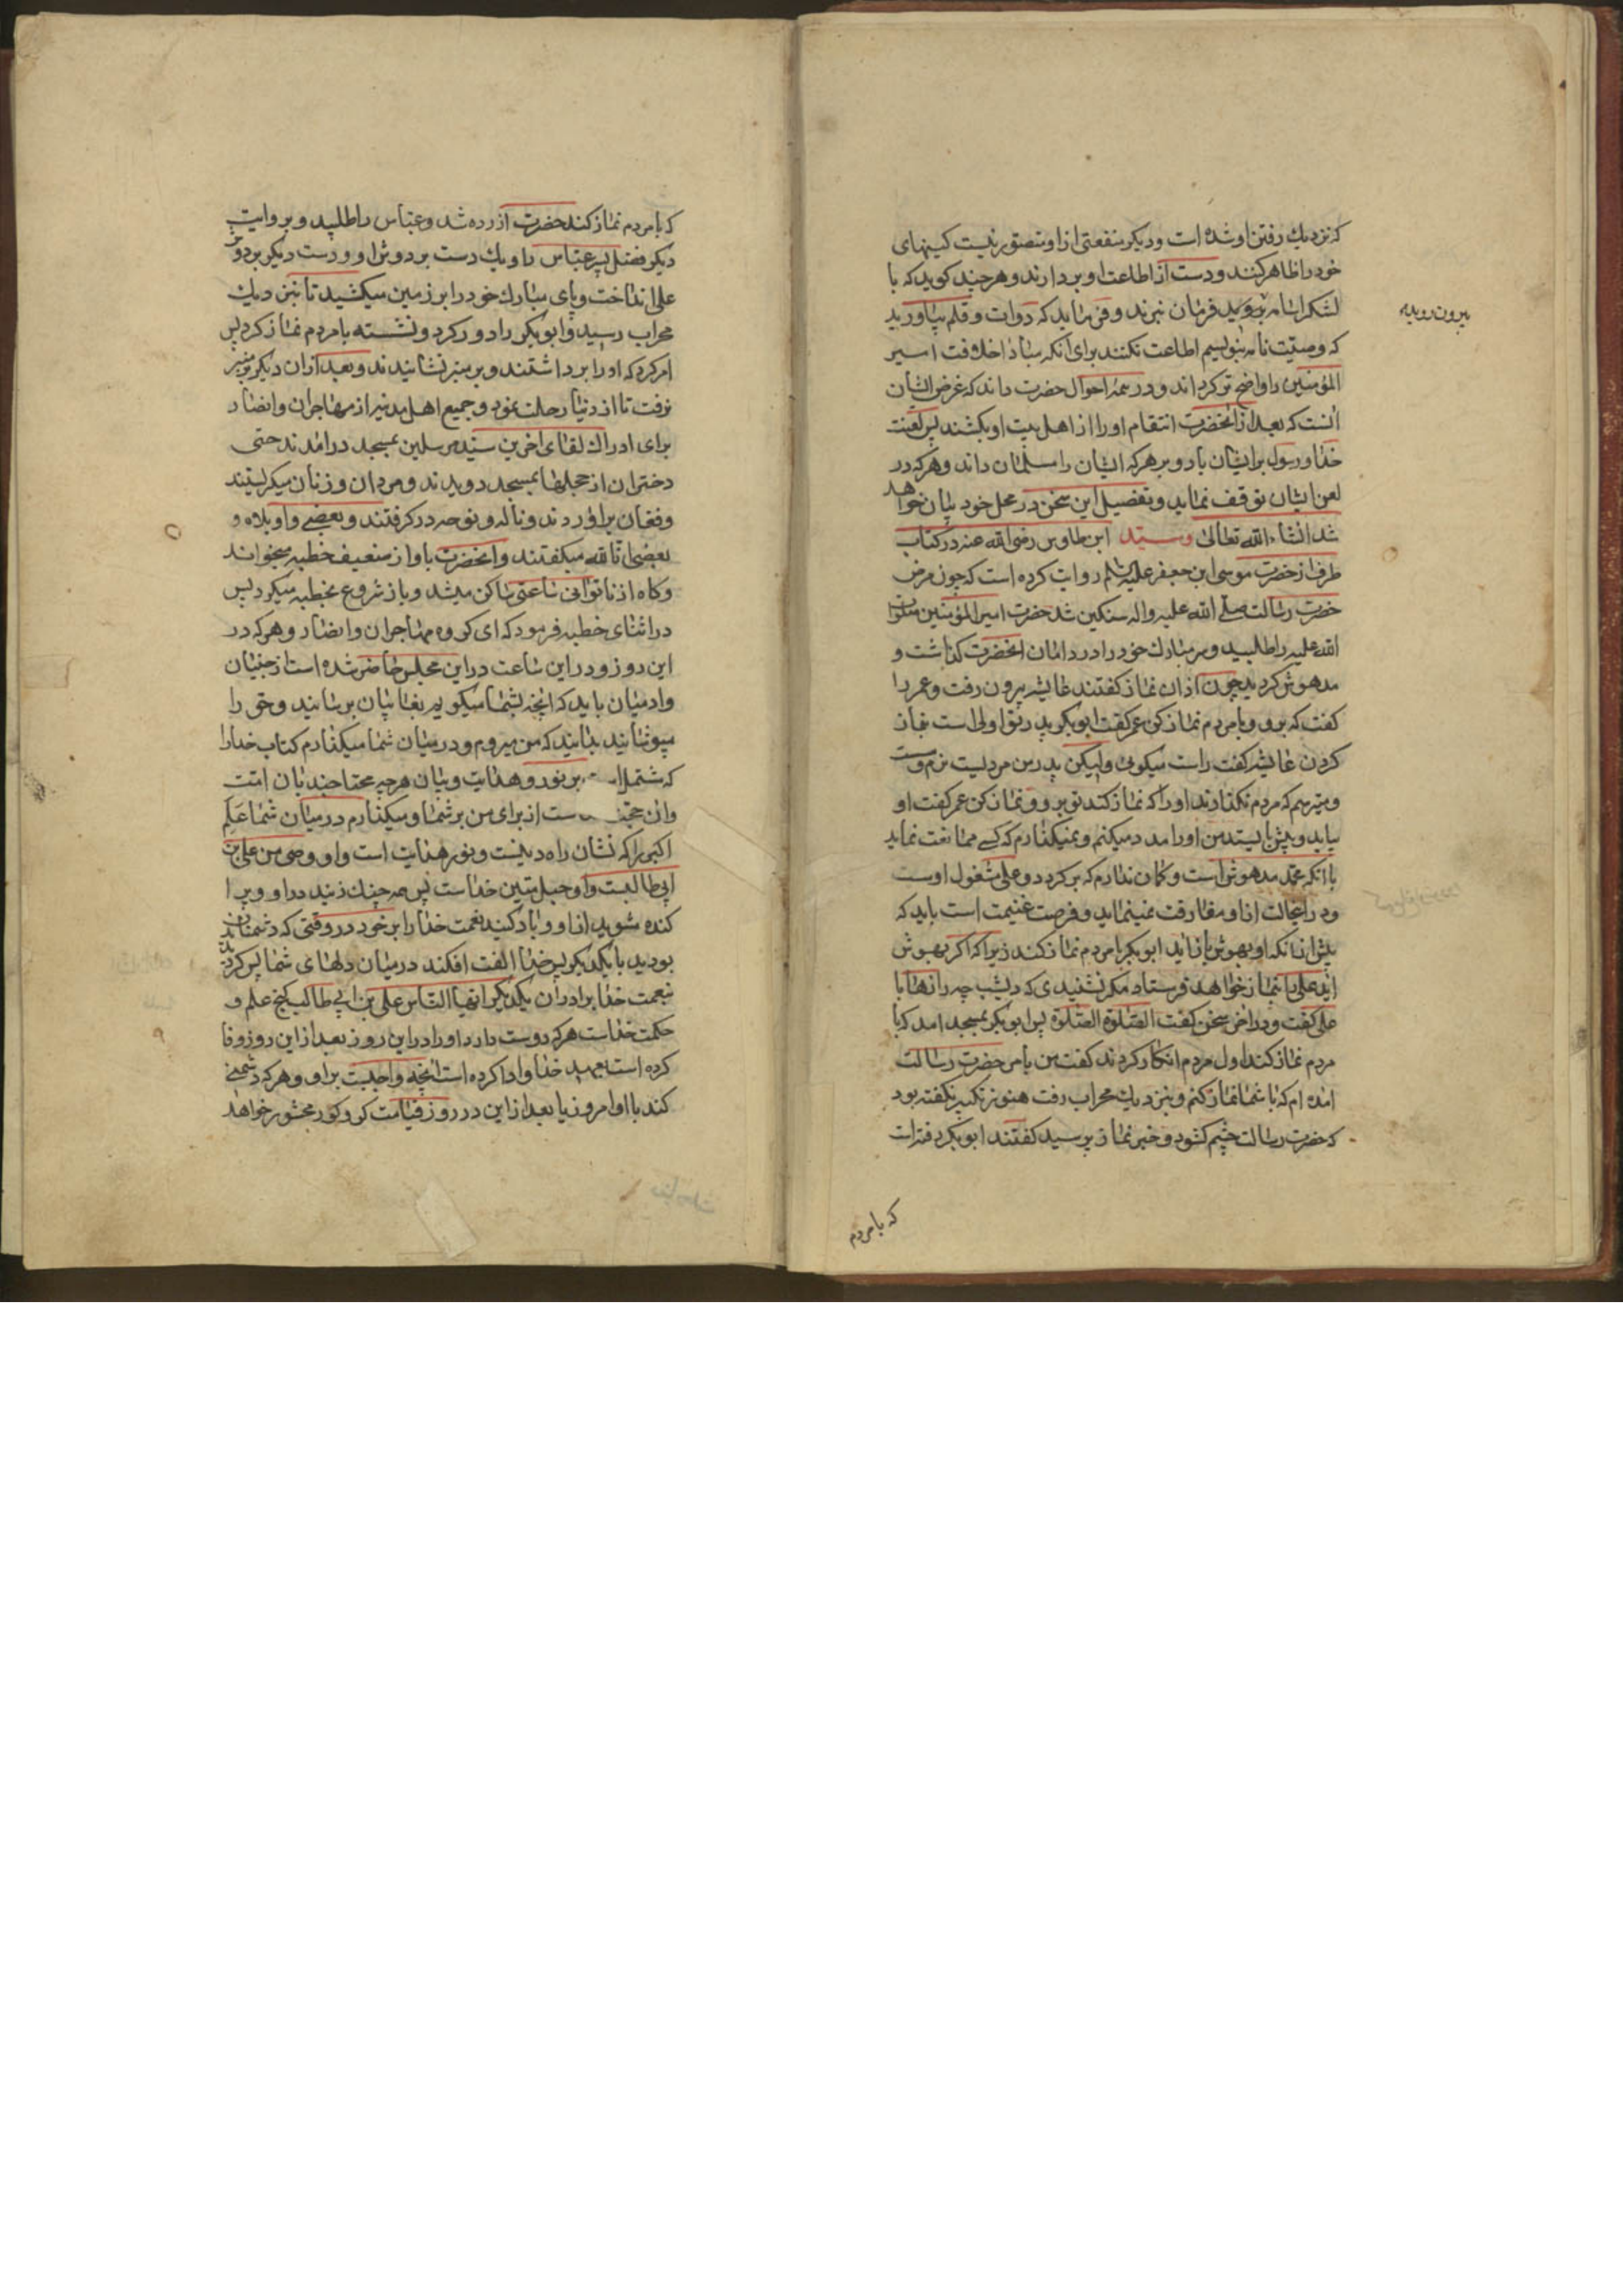 که نزدیك رفتن او شده است و دیکر منفعتی از او متصور نیست کینهای
خود را ظاهر کنند و دست از اطاعت او بردارند و هر چند کوید که با
لشکر اسامه بروید فرمان نبرند و فرماید که دوات و قلم بیاورید
بیرون روید
که وصیّت نامه بنویسم اطاعت نکنند برای آنکه مبادا خلافت امیر
المؤمنین را واضح تر کرداند و در همه احوال حضرت داند که غرض ایشان
آنست که بعد از آنحضرت انتقام او را از اهل بیت او بکشند پس لعنت
خدا و رسول بر ایشان باد و بر هر که ایشان را مسلمان داند و هر که در
لعن ایشان توقف نماید و تفصیل این سخن در محل خود بیان خواهد
شد انشاء الله تعالی و سیّد ابن طاوس رضی الله عنه در کتاب
طرف از حضرت موسی ابن جعفر علیه السلم روایت کرده است که چون مرض
حضرت رسالت صلی الله علیه واله سنکین شد حضرت امیر المؤمنین صلوات
الله علیه را طلبید و سر مبارك خود را در دامان آنحضرت کذاشت و
مدهوش کردید چون اذان نماز کفتند عایشه بیرون رفت و عمر را
کفت که برو و با مردم نماز کن عمر کفت ابو بکر پدر تو اولی است بنماز
کردن عایشه کفت راست میکوئی ولیکن پدر من مردیست نرم و سست
و میترسم که مردم نکذارند او را که نماز کند تو برو و نماز کن عمر کفت او
بیاید و پیش بایستد من او را مدد میکنم و نمیکذارم که کسی ممانعت نماید
با آنکه محمّد مدهوش است و کمان ندارم که برکردد و علی مشغول اوست
و در اینحالت از او مفارقت نمینماید و فرصت غنیمت است باید که
پیش از آنکه او بهوش باز آید ابو بکر با مردم نماز کند زیرا که اکر بهوش
آید علی را بنماز خواهد فرستاد مکر نشنیدی که دیشب چه رازها با
علی کفت و در آخر سخن کفت الصّلوة الصّلوة پس ابو بکر بمسجد آمد که با
مردم نماز کند اول مردم انکار کردند کفت من بامر حضرت رسالت
آمده ام که با شما نماز کنم و بنزدیك محراب رفت هنوز تکبیر نکفته بود
که حضرت رسالت چشم کشود و خبر نماز پرسید کفتند ابو بکر رفته است
که با مردم
که با مردم نماز کند حضرت آزرده شد و عبّاس را طلبید و بروایت
دیکر فضل پسر عبّاس را و یك دست بر دوش او و دست دیکر بر دوش
علی انداخت و پای مبارك خود را بر زمین میکشید تا بنزدیك
محراب رسید و ابو بکر را دور کرد و نشسته با مردم نماز کرد پس
امر کرد که او را برداشتند و بر منبر نشانیدند و بعد از آن دیکر بمنبر
نرفت تا از دنیا رحلت نمود و جمیع اهل مدینه از مهاجران و انصار
برای ادراك لقای آخرین سیّد مرسلین بمسجد درآمدند حتی
دختران از حجلها بمسجد دویدند و مردان و زنان میکریستند
و فغان برآوردند و ناله و نوحه در کرفتند و بعضی واویلاه و
بعضی انّا لله میکفتند و آنحضرت باواز ضعیف خطبه میخواند
و کاه از ناتوانی ساعتی ساکن میشد و باز شروع بخطبه میکرد پس
در اثنای خطبه فرمود که ای کروه مهاجران و انصار و هر که در
این روز و در این ساعت در این مجلس حاضر شده است از جنیّان
و آدمیان باید که آنچه بشما میکویم بغایبان برسانید و حق را
مپوشانید بدانید که من میروم و در میان شما میکذارم کتاب خدا را
که مشتمل است بر نور و هدایت و بیان هر چه محتاجند بآن امّت
و آن حجّت است از برای من بر شما و میکذارم در میان شما علم
اکبر را که نشان راه دینست و نور هدایت است و او وصی من علی بن
ابی طالبست و او حبل متین خداست پس همه چنك زنید در او و پرا
کنده مشوید از او و یاد کنید نعمت خدا را بر خود در وقتی که دشمنان
بودید با یکدیکر پس خدا الفت افکند در میان دلهای شما پس کردیدید
بنعمت خدا برادران یکدیکر ایّها النّاس علی بن ابی طالب کنج علم و
حکمت خداست هر که دوست دارد او را در این روز بعد از این روز وفا
کرده است بعهد خدا و ادا کرده است آنچه واجبست بر او و هر که دشمنی
کند با او امروز یا بعد از این در روز قیامت کر و کور محشور خواهد